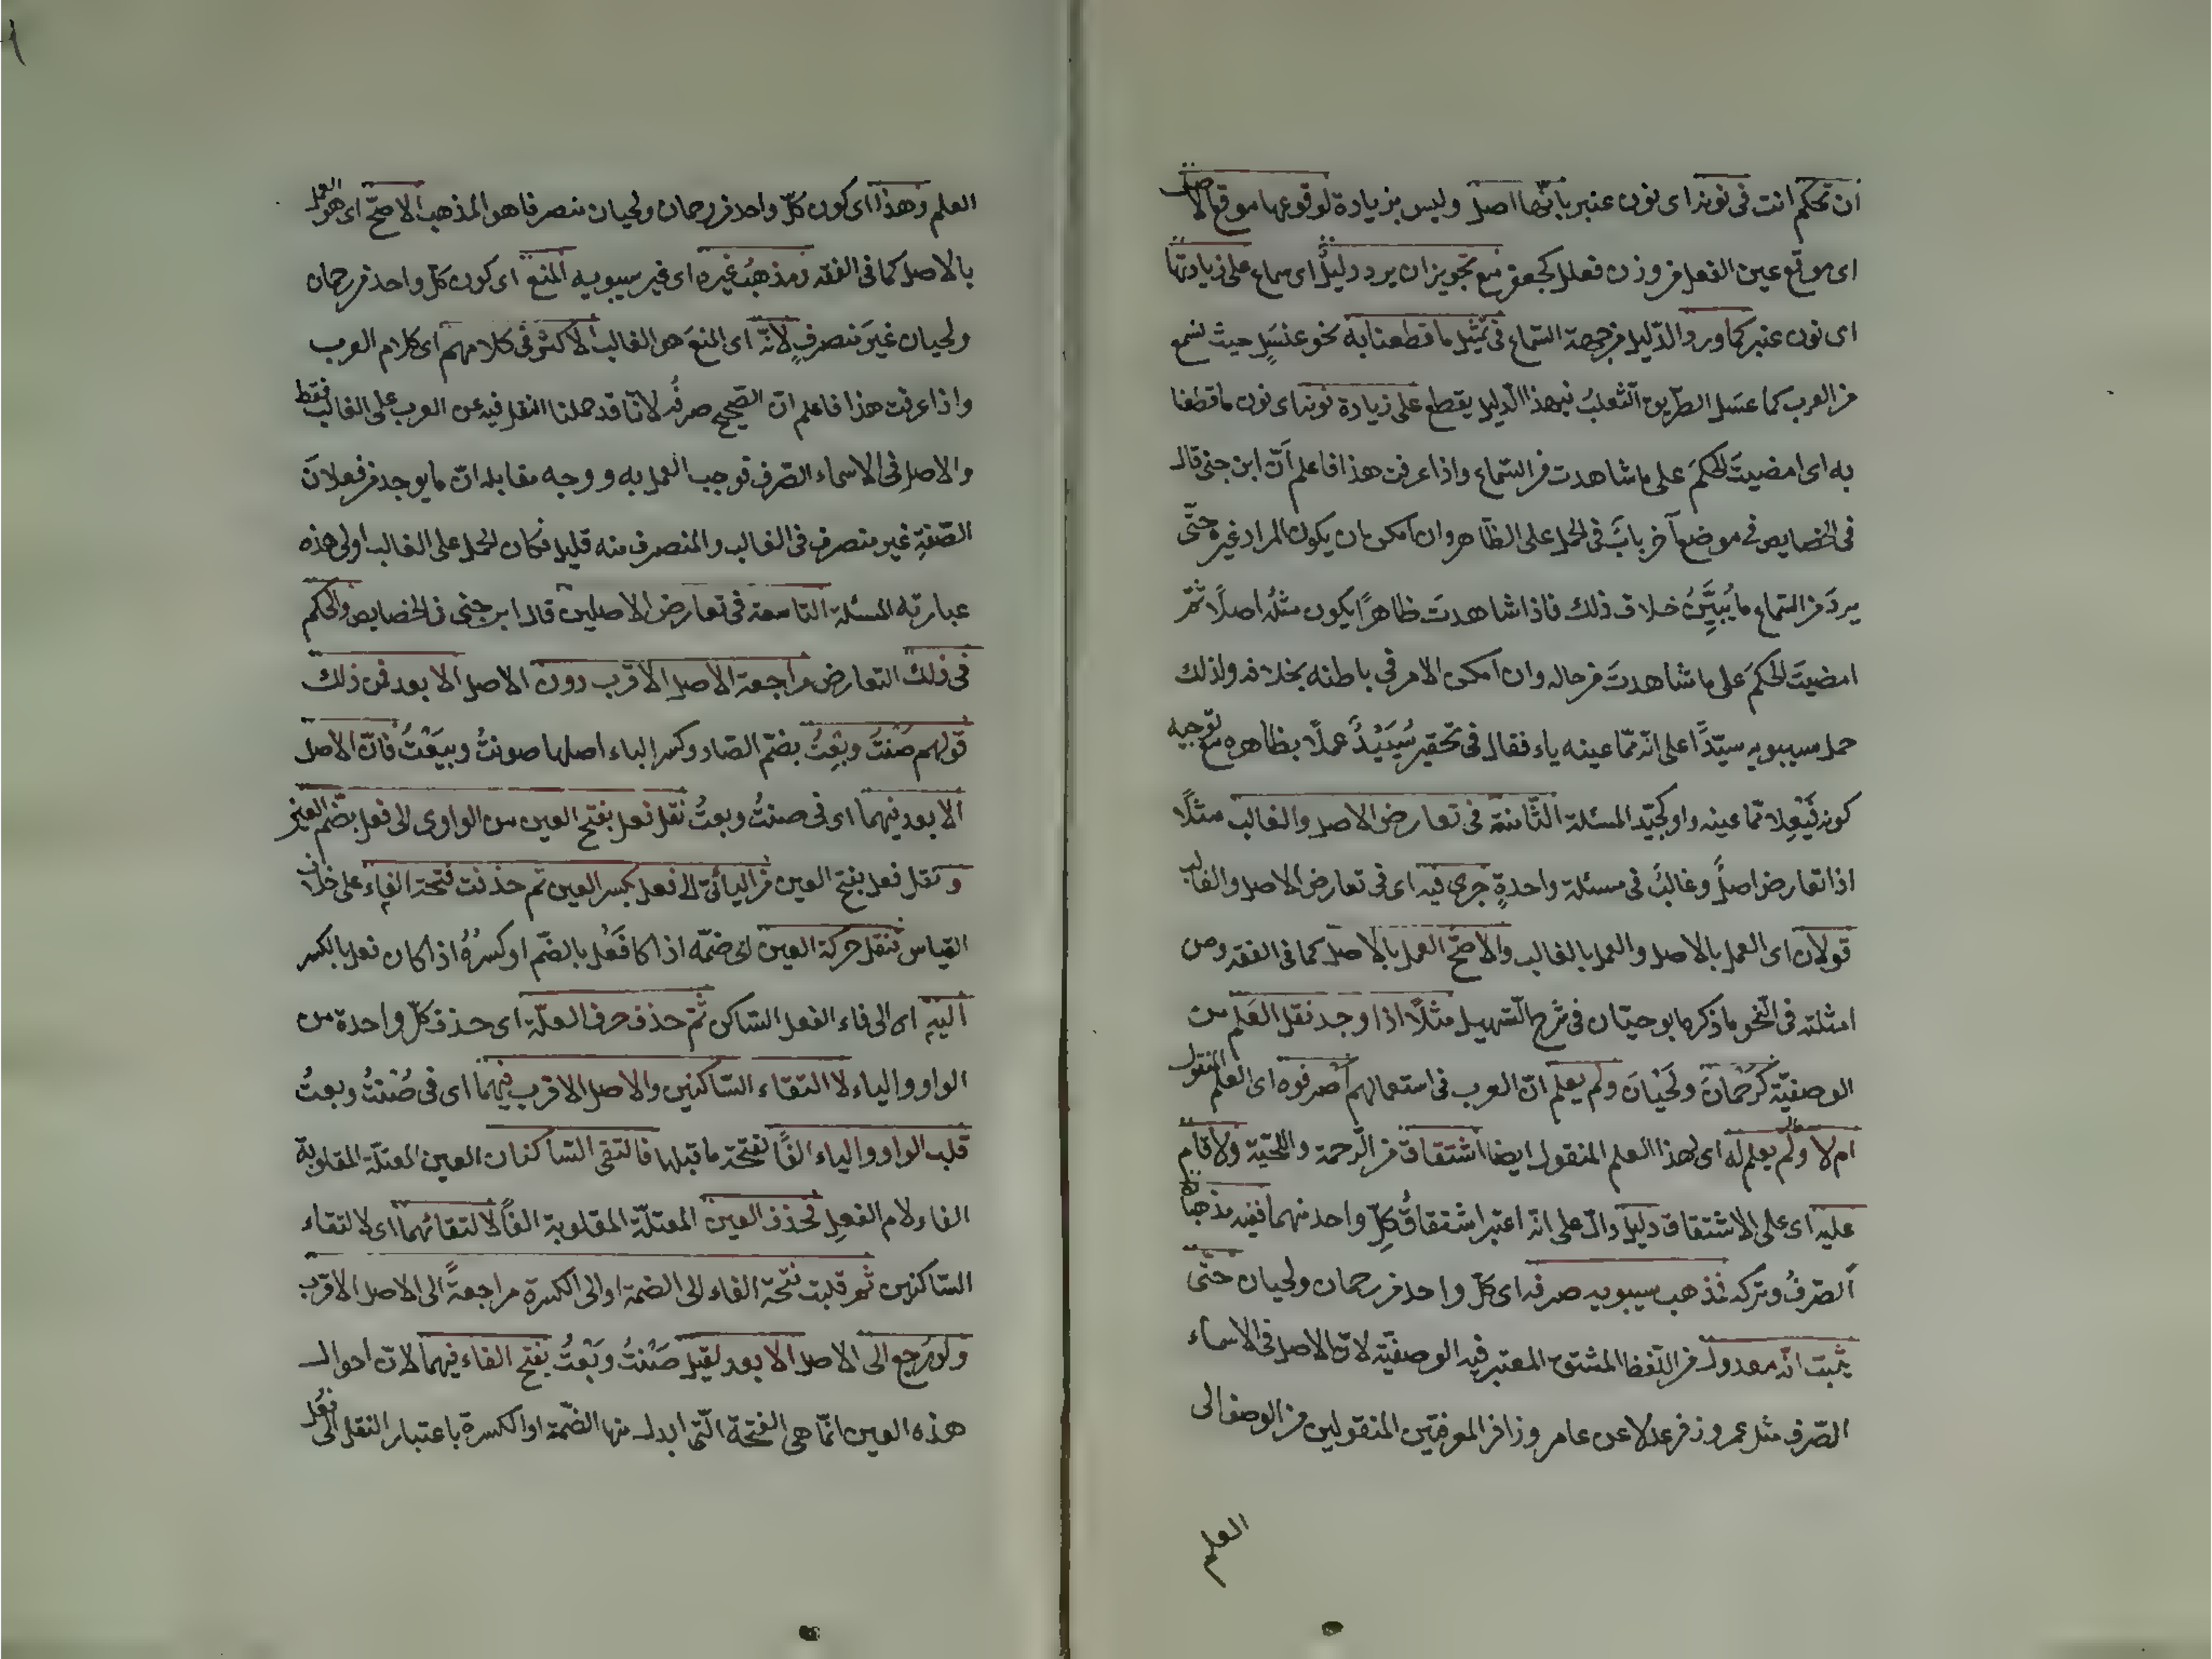 ان تحكم انت فى نونه اى نون عنبر بانّها اصل وليس بزيادة لوقوعها موقع الاصل
اى موقع عين الفعل من وزن فعلل كجعفر مع تجويز ان يرد دليلٌ اى سماع على زيادتها
اى نون عنبر كما ورد الدّليل من جهة السّماع فى مثل ما قطعنا به نحو عنسَلٍ حيث نسمع
من العرب كما عسَل الطّريق الثّعلبُ فبهذا الدليل يقطع على زيادة نونه اى نون ما قطعنا
به اى امضيتَ الحكمَ على ما شاهدت من السّماع واذا عرفت هذا فاعلم انّ ابن جنى قال
فى الخصايص فى موضع آخر بابٌ فى الحمل على الظّاهر وان امكن ان يكون المراد غيره حتّى
يردَ من السّماع ما يُبيِّنُ خلاف ذلك فاذا شاهدتَ ظاهرًا يكون مثلُه اصلًا ثمّ
امضيتَ الحكمَ على ما شاهدتَ من حاله وان امكن الامر فى باطنه بخلافه ولذلك
حمل سيبويه سيّدًا على انّه ممّا عينه ياء فقال فى تحقير سُيَيْدٌ عملًا بظاهره مع توجيه
كونه فَيْعِلا ممّا عينه واو كجيّد المسئلة الثّامنة فى تعارض الاصل والغالب مثلًا
اذا تعارض اصلٌ وغالبٌ فى مسئلة واحدةٍ جرى فيه اى فى تعارض الاصل والغالب
قولان اى العمل بالاصل والعمل بالغالب والاصحّ العمل بالاصل كما فى الفقه ومن
امثلته فى النّحو ما ذكره ابو حيّان فى شرح التّسهيل مثلًا اذا وجد نقل العَلم من
الوصفيّة كرَحْمانَ ولَحْيانَ ولم يعلم انّ العرب فى استعمالهم اصرفوه اى العلم المنقول
ام لا ولم يعلم له اى لهذا العلم المنقول ايضا اشتقاق من الرّحمة واللّحيّة ولا قام
عليه اى على الاشتقاق دليل دالّ على انّه اعتبر اشتقاقُ كلّ واحد منهما ففيه مذهبان
الصّرفُ وتركه فمذهب سيبويه صرفه اى كلّ واحد من رحمان ولحيان حتّى
يثبت انّه معدول من اللّفظ المشتق المعتبر فيه الوصفيّة لانّ الاصل فى الاسماء
الصّرف مثل عمر وزفر عدلا عن عامر وزافر المعرفتين المنقولين من الوصف الى
العلم
العلم وهذا اى كون كلّ واحد من رحمان ولحيان منصرفا هو المذهب الاصحّ اى هو العمل
بالاصل كما فى الفقه ومذهبُ غيره اى غير سيبويه المنع اى كون كلّ واحد من رحمان
ولحيان غيرَ منصرفٍ لانّه اى المنعَ هو الغالب الاكثر فى كلامهم اى كلام العرب
واذا عرفت هذا فاعلم انّ الصّحيح صرفُه لانّا قد حملنا النقل فيه عن العرب على الغالب فقط
والاصل فى الاسماء الصّرف فوجب العمل به ووجه مقابله انّ ما يوجد من فعلانَ
الصّفةِ غير منصرف فى الغالب والمنصرف منه قليل فكان الحمل على الغالب اولى هذه
عبارته المسئلة التاسعة فى تعارض الاصلين قال ابن جنى فى الخصايص والحكم
فى ذلك التعارض مراجعة الاصل الاقرب دون الاصل الابعد فمن ذلك
قولهم صُنتُ وبِعتُ بضمّ الصّاد وكسر الباء اصلها صونتُ وبيَعْتُ فانّ الاصل
الابعد فيهما اى فى صنتُ وبعتُ نقل فعل بفتح العين من الواوى الى فعل بضم العين
ونقل فعل بفتح العين من اليائىّ الى فعل بكسر العين ثم حذفت فتحة الفاء على خلاف
القياس فنقل حركة العين اى ضمّه اذا كا فَعُل بالضّم او كسرُهُ اذا كان فعل بالكسر
اليه اى الى فاء الفعل السّاكن ثمّ حذف حرف العلّة اى حذف كلّ واحدة من
الواو والياء لا التقاء السّاكنين والاصل الاقرب فيهما اى فى صُنتُ وبعتُ
قلب الواو والياء الفًا لفتحة ما قبلها فالتقى السّاكنان العين المعتلّة المقلوبة
الفا ولام الفعلِ فحذف العين المعتلّة المقلوبة الفًا لالتقائهما اى لالتقاء
السّاكنين ثم قلبت فتحة الفاء الى الضمة او الى الكسرة مراجعةً الى الاصل الاقرب
ولو رجع الى الاصل الابعد لقيل صَنتُ وبَعتُ بفتح الفاء فيهما لانّ احوال
هذه العين انّما هى الفتحة الّتى ابدل منها الضّمة او الكسرة باعتبار النقل الى فعُل